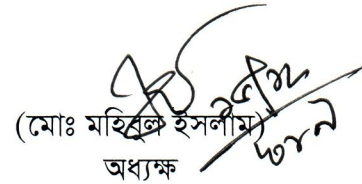 (মোঃ মহিবুল ইসলাম)
অধ্যক্ষ